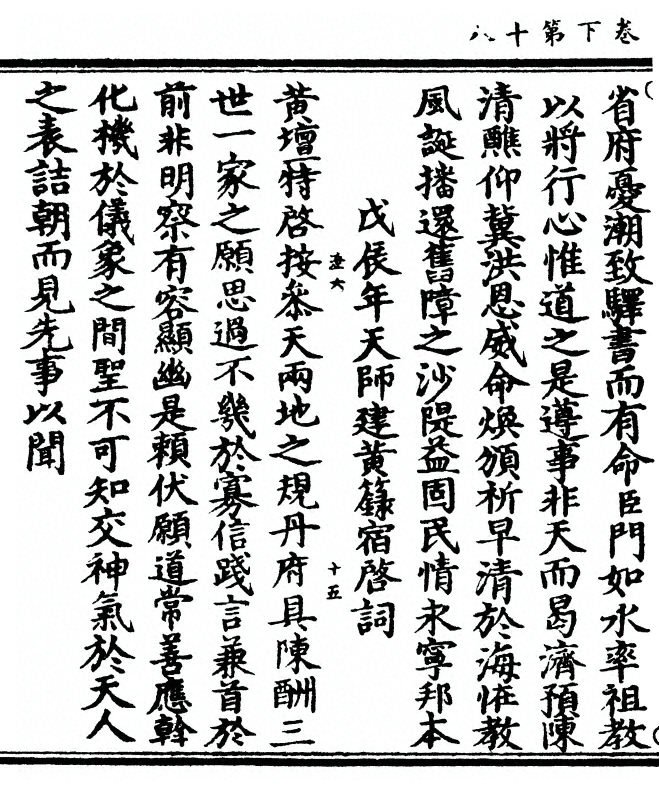 卷下第十八
省府憂潮致驛書而有命臣門如水率祖教
以將行心惟道之是遵事非天而曷濟預陳
清醮仰冀洪恩威命煥頒祈早清於海怪教
風誕播還舊障之沙隄益固民情永寧邦本
戊辰年天師建黃籙宿啓詞
壼六
十五
黃壇特啓按叅天兩地之規丹府具陳酬三
世一家之願思過不幾於寡信踐言兼首於
前非明察有容顯幽是賴伏願道常善應斡
化機於儀象之間聖不可知交神氣於天人
之表詰朝而見先事以聞